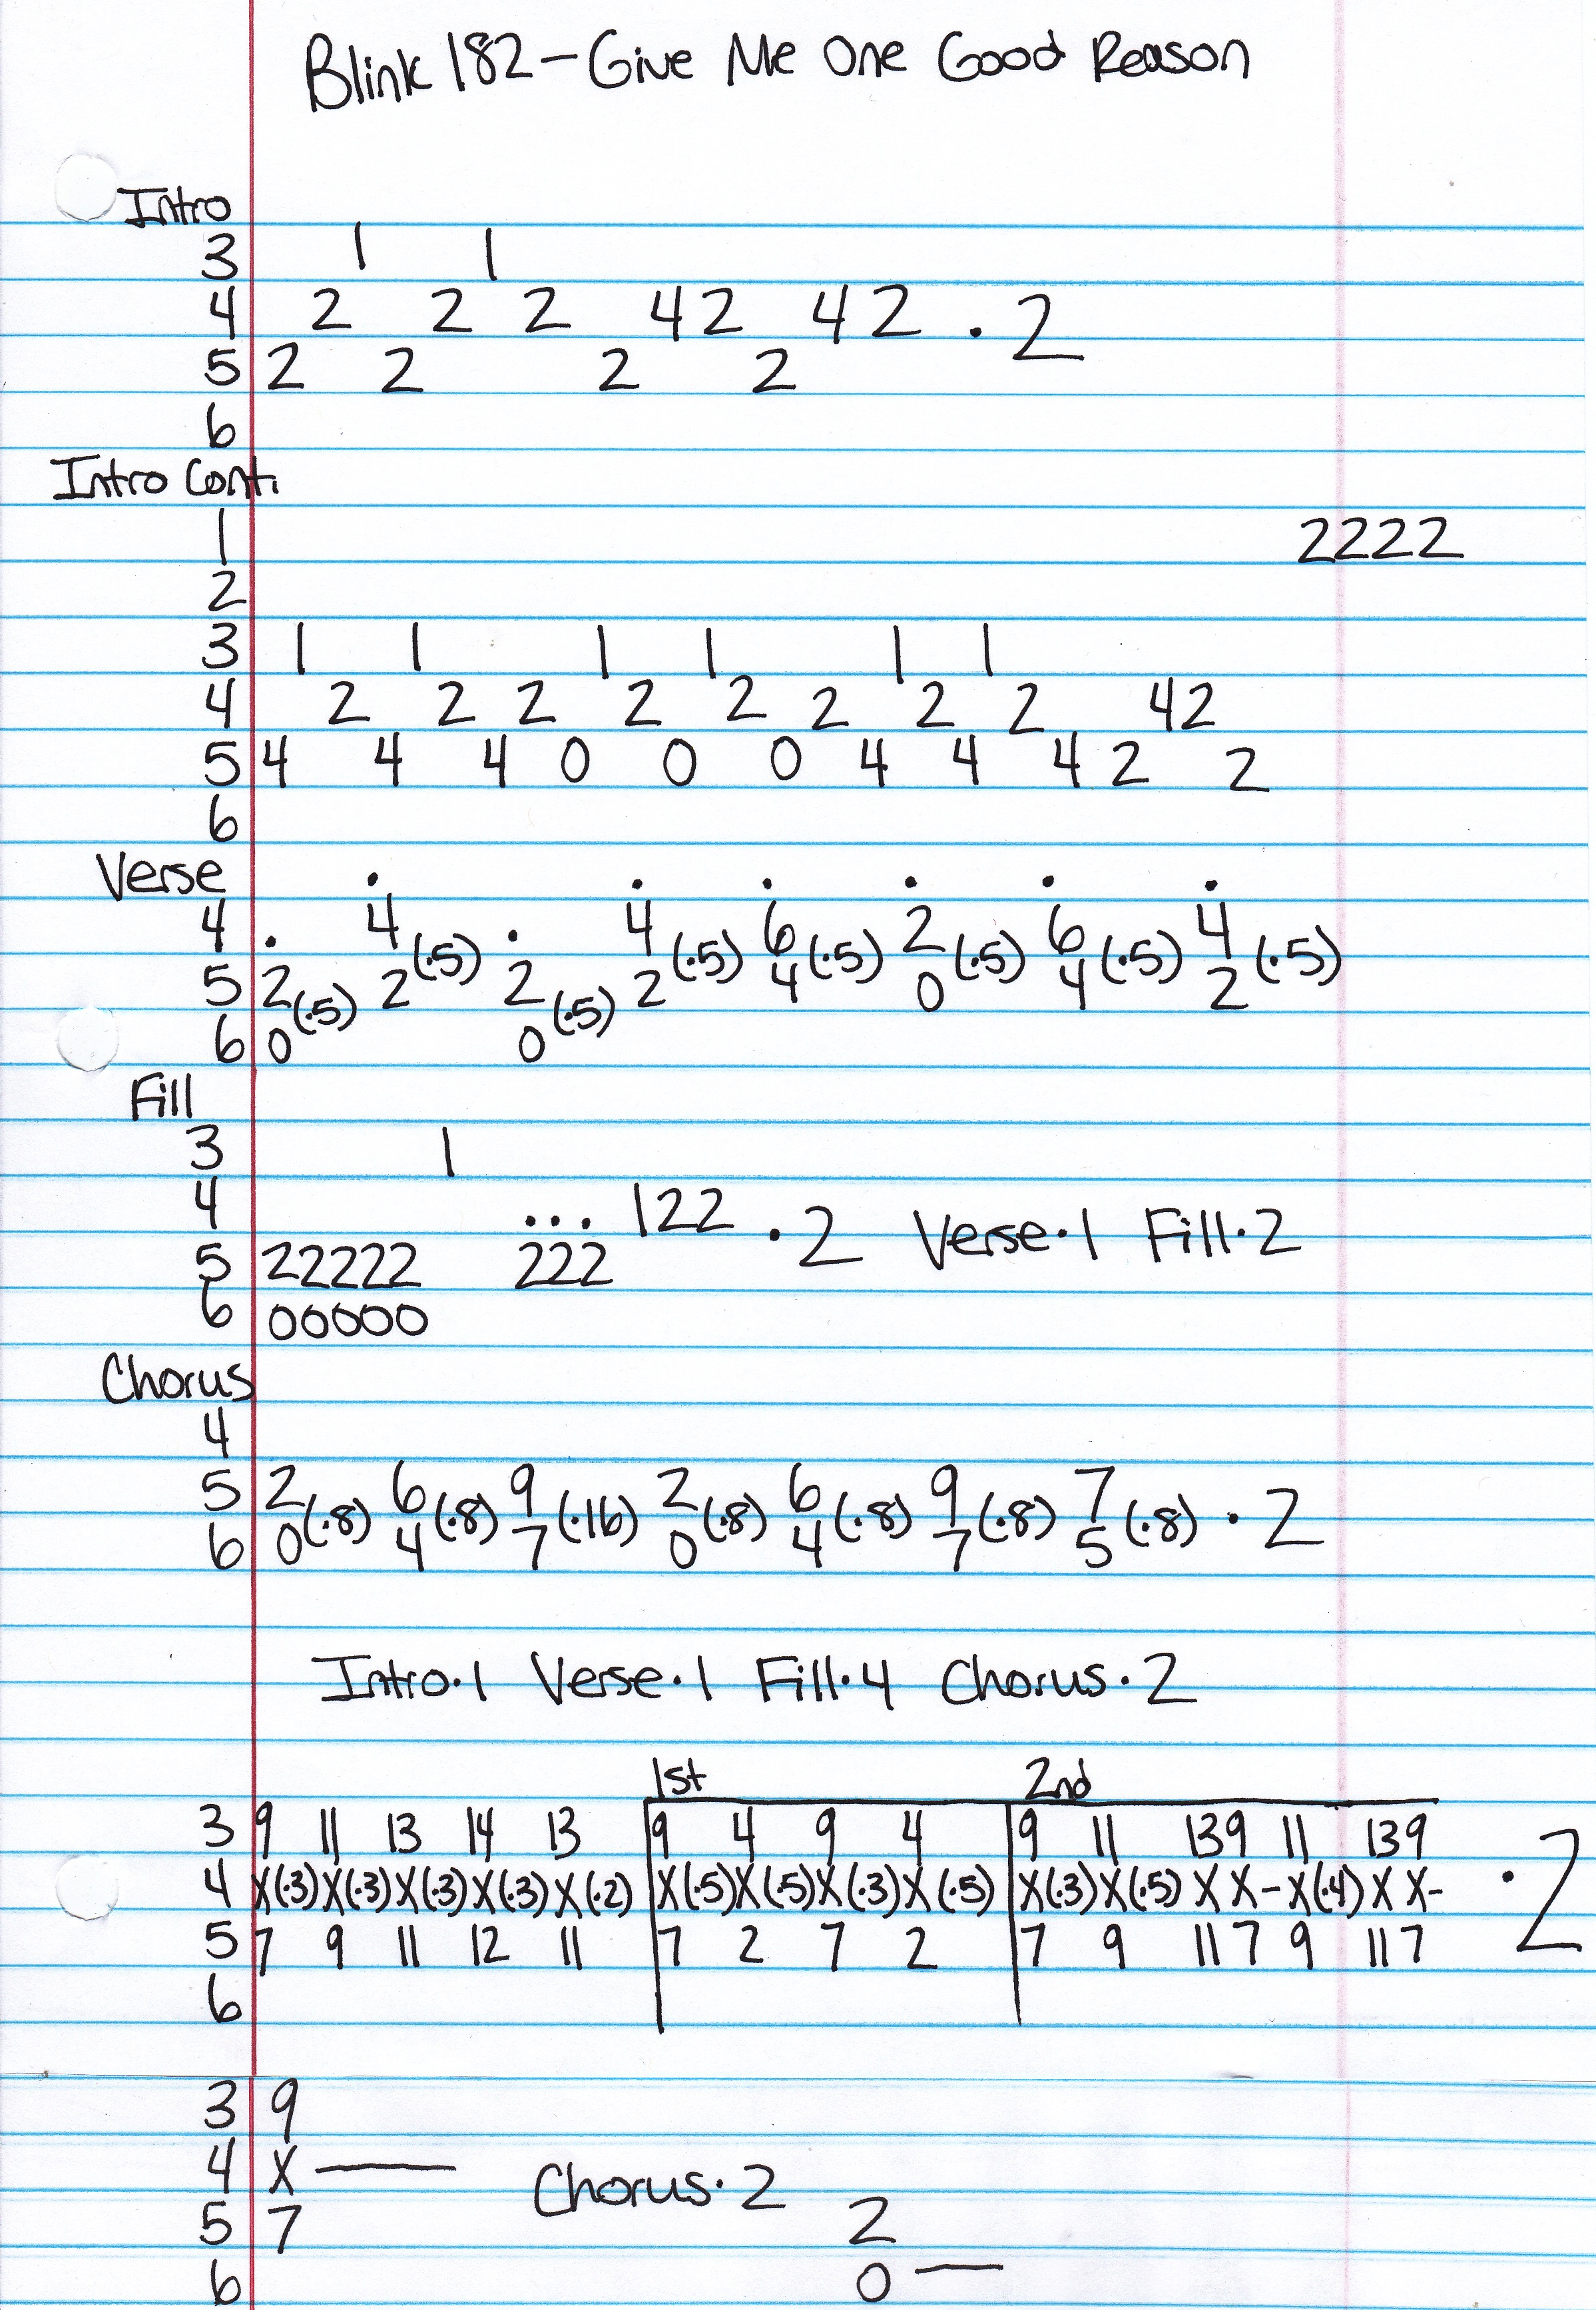 Blink 182 - Give Me One Good Reason
Intro
3 1 1
4 2 2 2 42 42 · 2
5 2 2 2 2
6
Intro Cont.
1 2222
2
3 1 1 1 1 1 1
4 2 2 2 2 2 2 2 2 42
5 4 4 4 0 0 0 4 4 4 2 2
6
Verse
4 · 4 (·5) · 4 (·5) 6 (·5) 2 (·5) 6 (·5) 4 (·5)
5 2 (·5) 2 2 (·5) 2 4 0 4 2
6 0 0
Fill
3 1
4 ... 122 · 2 Verse · 1 Fill · 2
5 22222 222
6 00000
Chorus
4
5 2 (·8) 6 (·8) 9 (·16) 2 (·8) 6 (·8) 9 (·8) 7 (·8) · 2
6 0 4 7 0 4 7 5
Intro · 1 Verse · 1 Fill · 4 Chorus · 2
1st 2nd
3 9 11 13 14 13 9 4 9 4 9 11 13 9 11 13 9
4 X (·3) X (·3) X (·3) X (·3) X (·2) X (·5) X (·5) X (·3) X (·5) X (·3) X (·5) X X - X (·4) X X - · 2
5 7 9 11 12 11 7 2 7 2 7 9 11 7 9 11 7
6
3 9
4 X — Chorus · 2
5 7 2
6 0 —